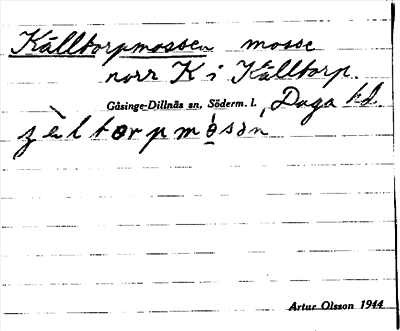 Källtorpmossen mosse
norr K i Källtorp.
Gåsinge-Dillnäs sn, Söderm. l., Daga hd.
Artur Olsson 1944